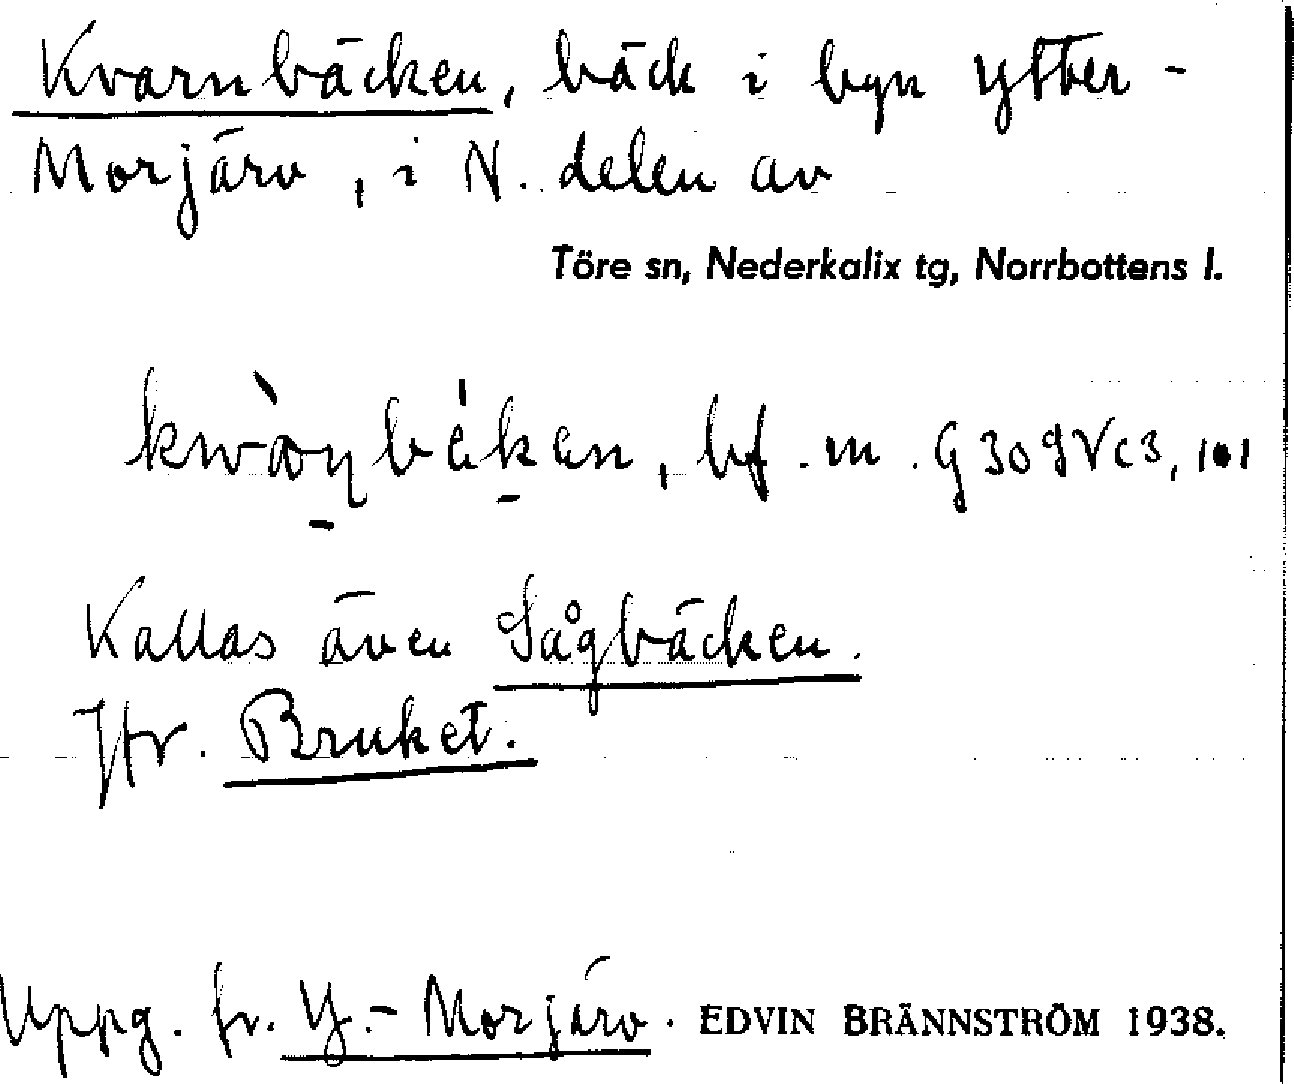 Kvarnbäcken, bäck i byn Ytter-
Morjärv, i N. delen av
Töre sn, Nederkalix tg, Norrbottens l.
bf. m.
Kallas även Sågbäcken.
Jfr. Bruket.
Uppg. fr. Y.-Morjärv. EDVIN BRÄNNSTRÖM 1938.